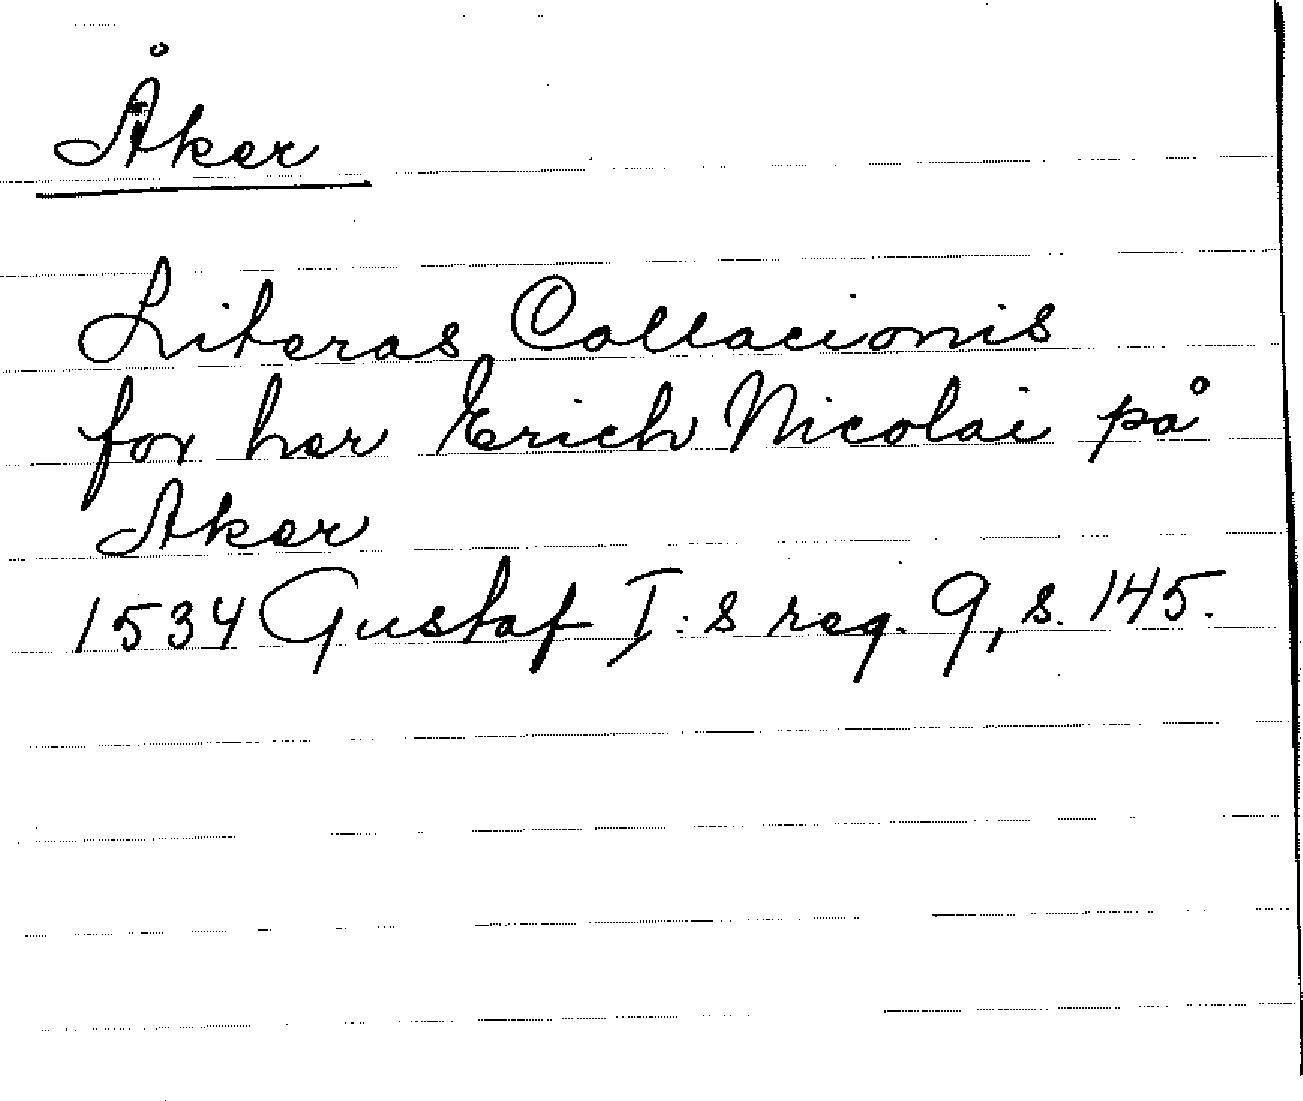 Åker
Literas Collacionis
for her Erich Nicolai på
Aker
1534 Gustaf I:s reg. 9, s. 145.